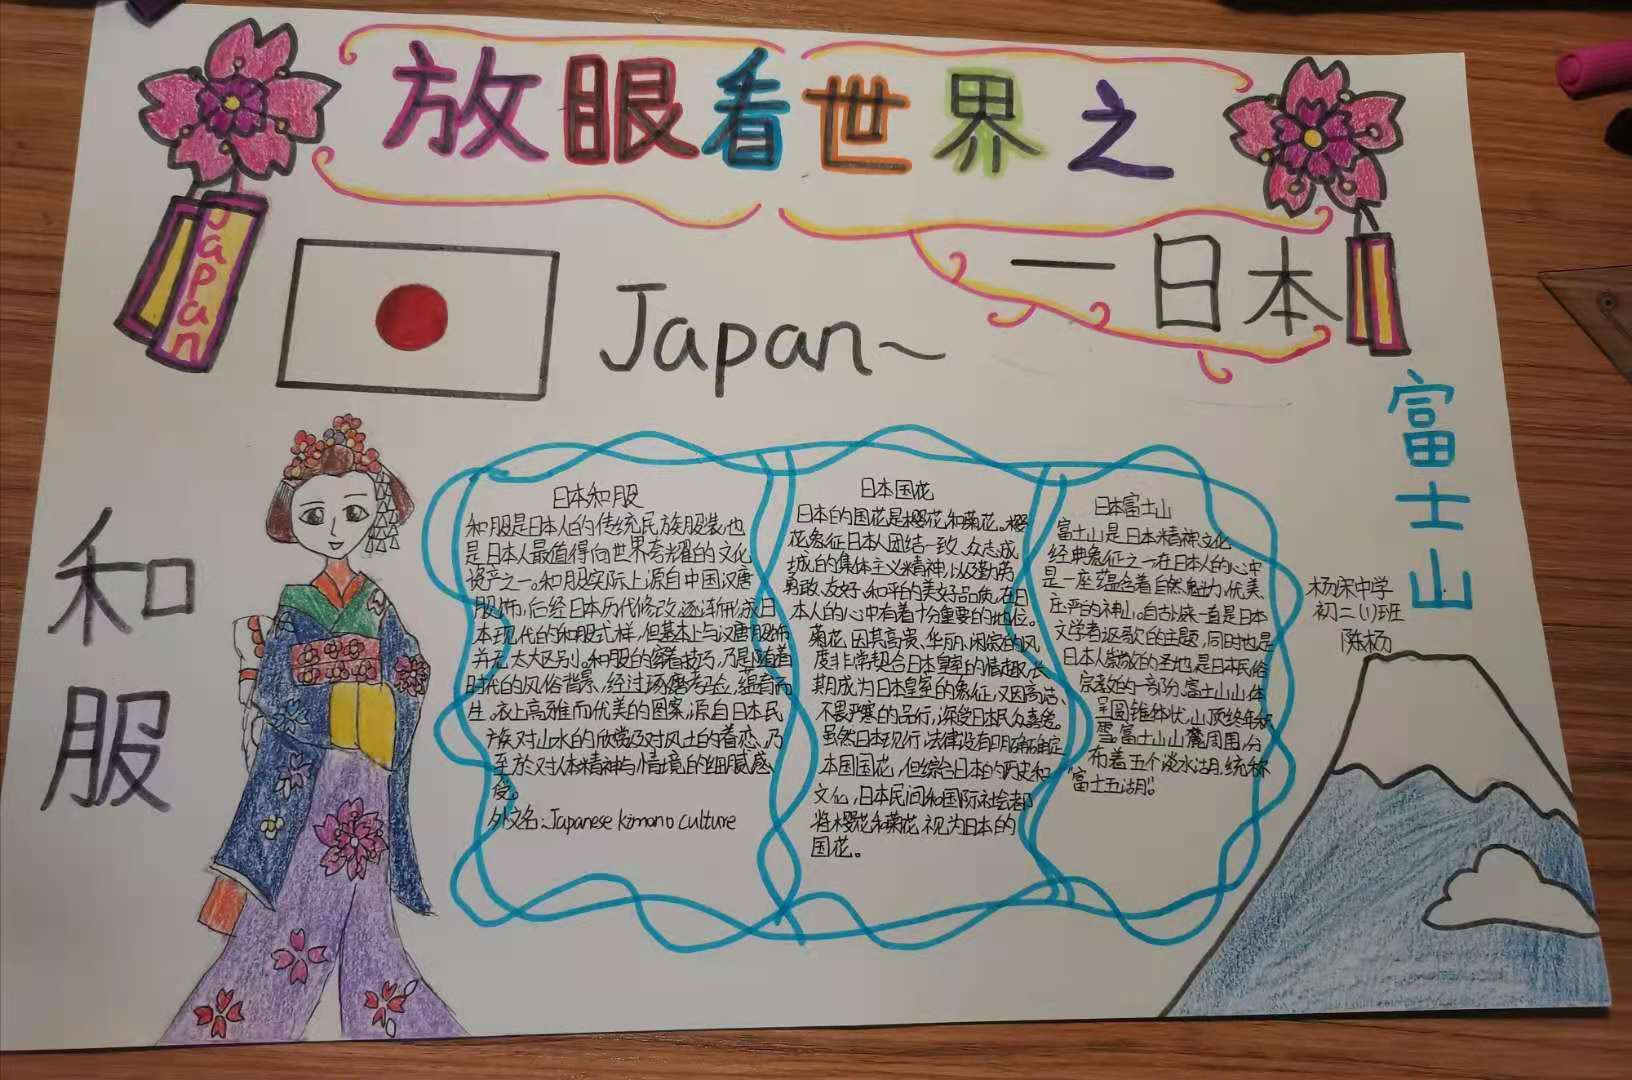 放眼看世界之
一日本
Japan
Japan~
富士山
和服
日本和服
和服是日本人的传统民族服装,也
是日本人最值得向世界夸耀的文化
资产之一。和服实际上源自中国汉唐
服饰,后经日本历代修改,逐渐形成日
本现代的和服式样,但基本上与汉唐服饰
并无太大区别。和服的穿着技巧,乃是随着
时代的风俗背景,经过琢磨考验,蕴育而
生。衣上高雅而优美的图案,源自日本民
族对山水的欣赏及对风土的着恋,乃
至於对人体精神与情境的细腻感
受。
外文名:Japanese kimono culture
日本国花
日本的国花是樱花和菊花。樱
花象征日本人团结一致、众志成
城的集体主义精神,以及勤劳
勇敢、友好、和平的美好品质,在日
本人的心中有着十分重要的地位。
菊花,因其高贵、华丽、闲寂的风
度非常契合日本皇室的情趣,长
期成为日本皇室的象征,又因高洁、
不畏严寒的品行,深受日本民众喜爱。
虽然日本现行法律没有明确确定
本国国花,但综合日本的历史和
文化,日本民间和国际社会都
将樱花和菊花视为日本的
国花。
日本富士山
富士山是日本精神、文化
经典象征之一在日本人的心中
是一座蕴含着自然魅力、优美、
庄严的神山。自古以来一直是日本
文学者讴歌的主题,同时也是
日本人崇敬的圣地,是日本民俗
宗教的一部分,富士山山体
呈圆锥体状,山顶终年积
雪,富士山山麓周围,分
布着五个淡水湖,统称
"富士五湖"。
杨宋中学
初二(1)班
陈杨